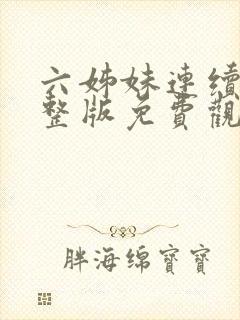 六姊妹連續
整版免費觀
胖海绵寶寶